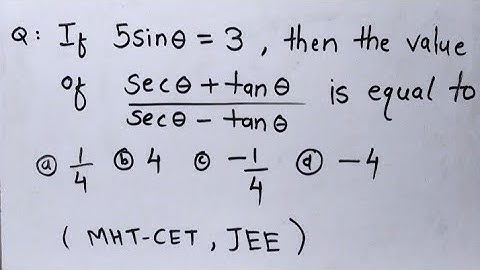 Q: If 5sinθ = 3, then the value
of (secθ + tanθ)/(secθ - tanθ) is equal to
ⓐ 1/4 ⓑ 4 ⓒ -1/4 ⓓ -4
(MHT-CET, JEE)